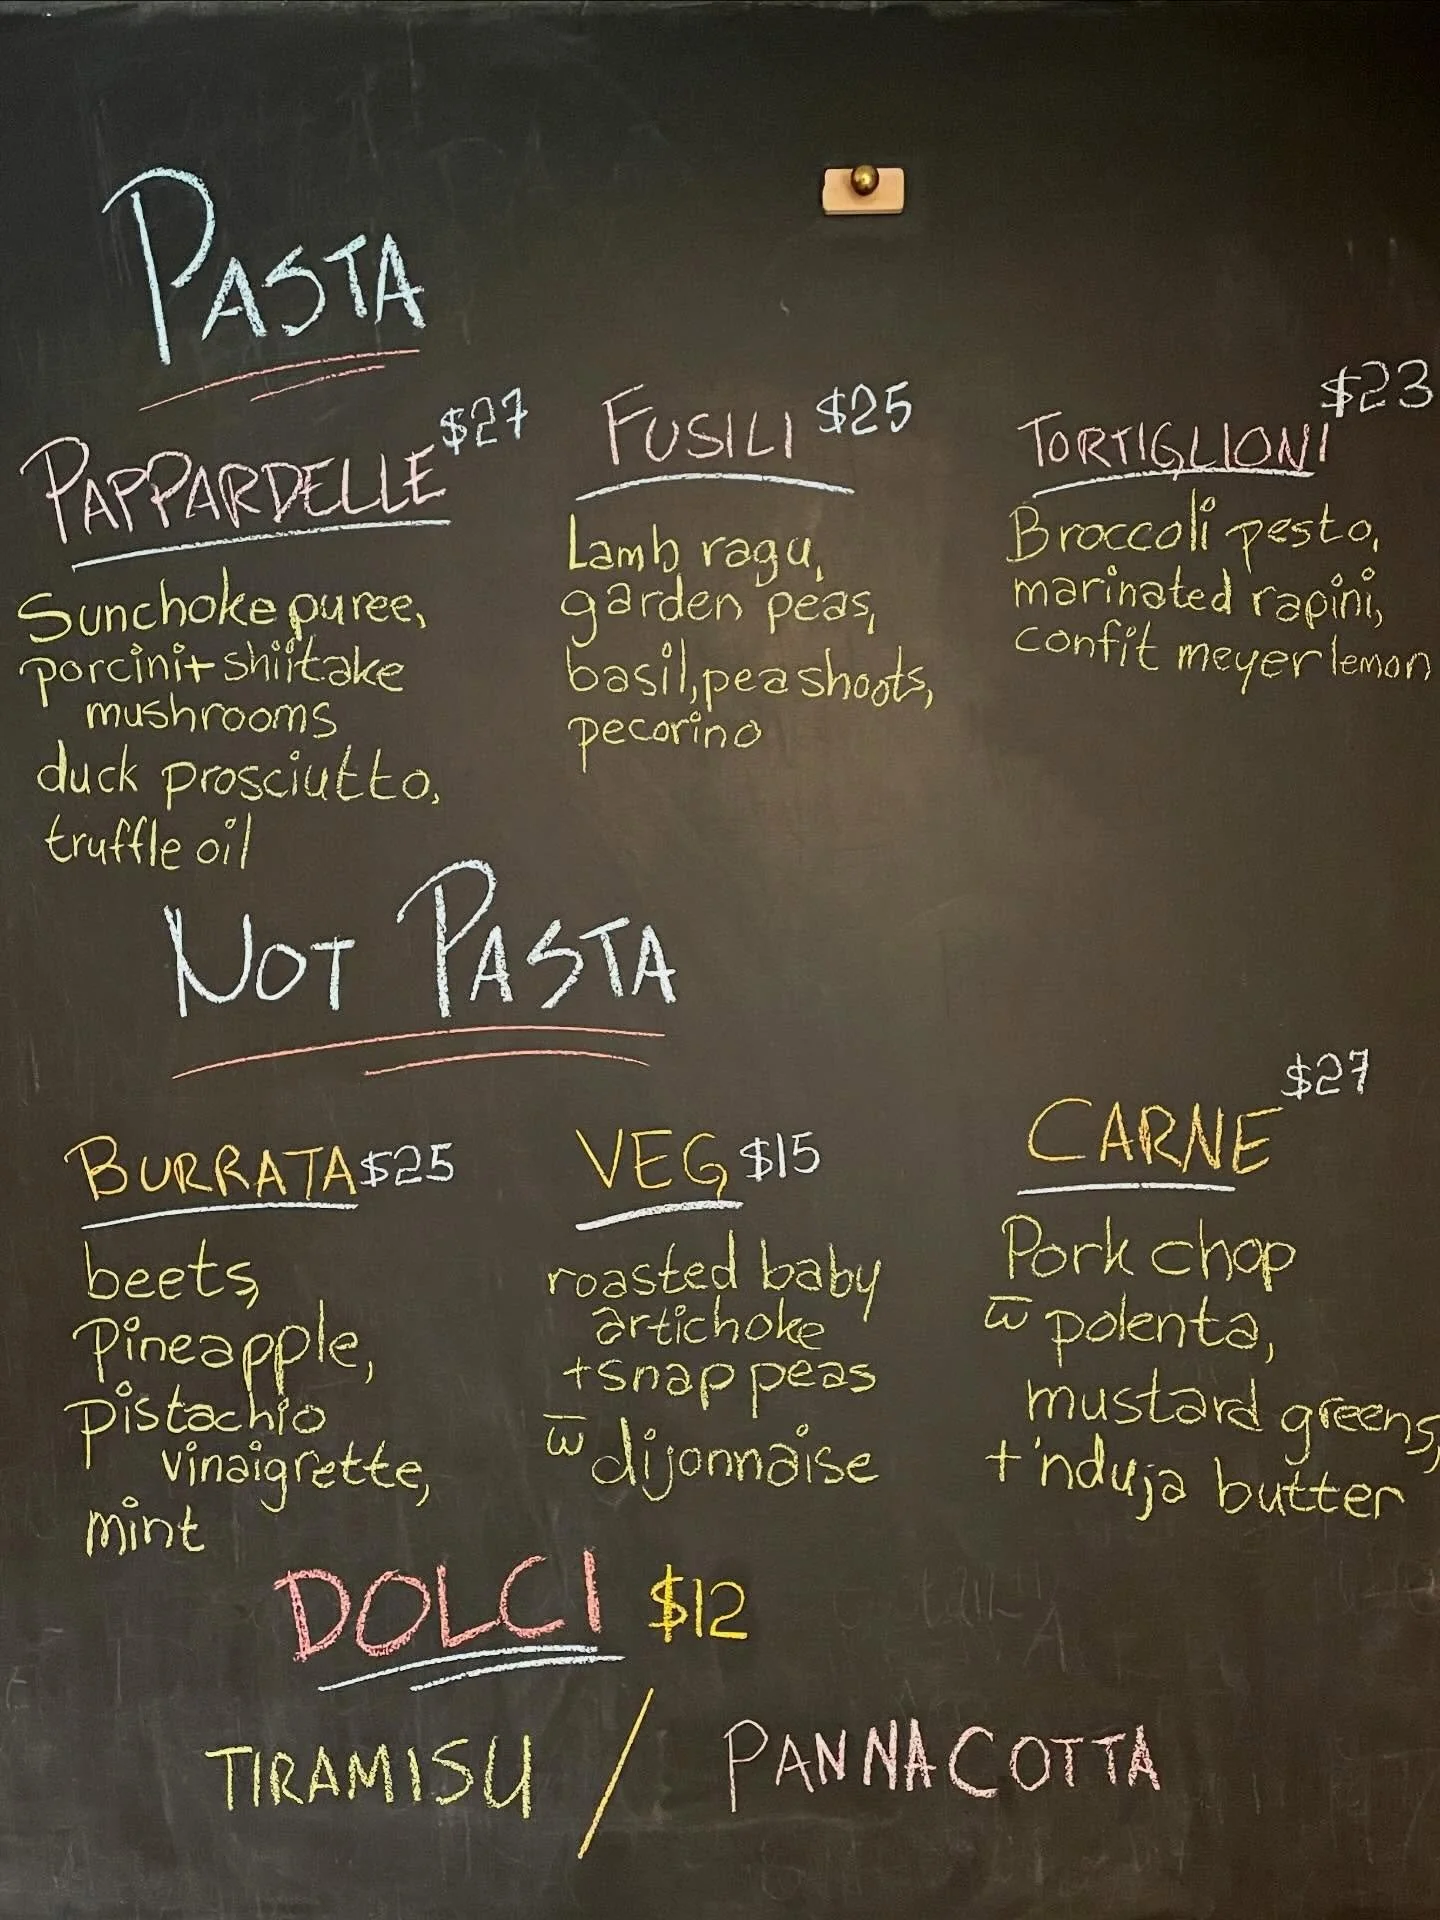 PASTA
PAPPARDELLE $27
Sunchoke puree,
porcini + shiitake
mushrooms
duck prosciutto,
truffle oil
FUSILI $25
Lamb ragu,
garden peas,
basil, pea shoots,
pecorino
TORTIGLIONI $23
Broccoli pesto,
marinated rapini,
confit meyer lemon
NOT PASTA
BURRATA $25
beets,
Pineapple,
Pistachio
vinaigrette,
mint
VEG $15
roasted baby
artichoke
+ snap peas
w̅ dijonnaise
CARNE $27
Pork chop
w̅ polenta,
mustard greens,
+ 'nduja butter
DOLCI $12
TIRAMISU / PANNA COTTA